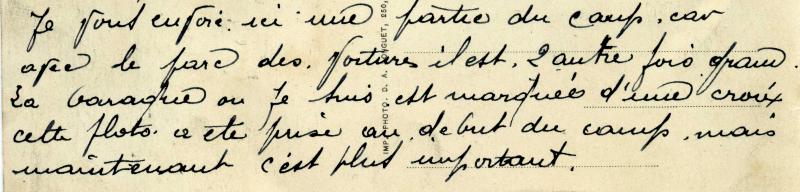 Je vous envoie ici une partie du camp. car
avec le parc des. Voitures il est. 2 autre fois grand.
La baraque ou Je suis est marquée d'une croix
cette photo. a ete prise au. debut du camp. mais
maintenant c'est plus important.
IMP. PHOTO. D. A. 250,